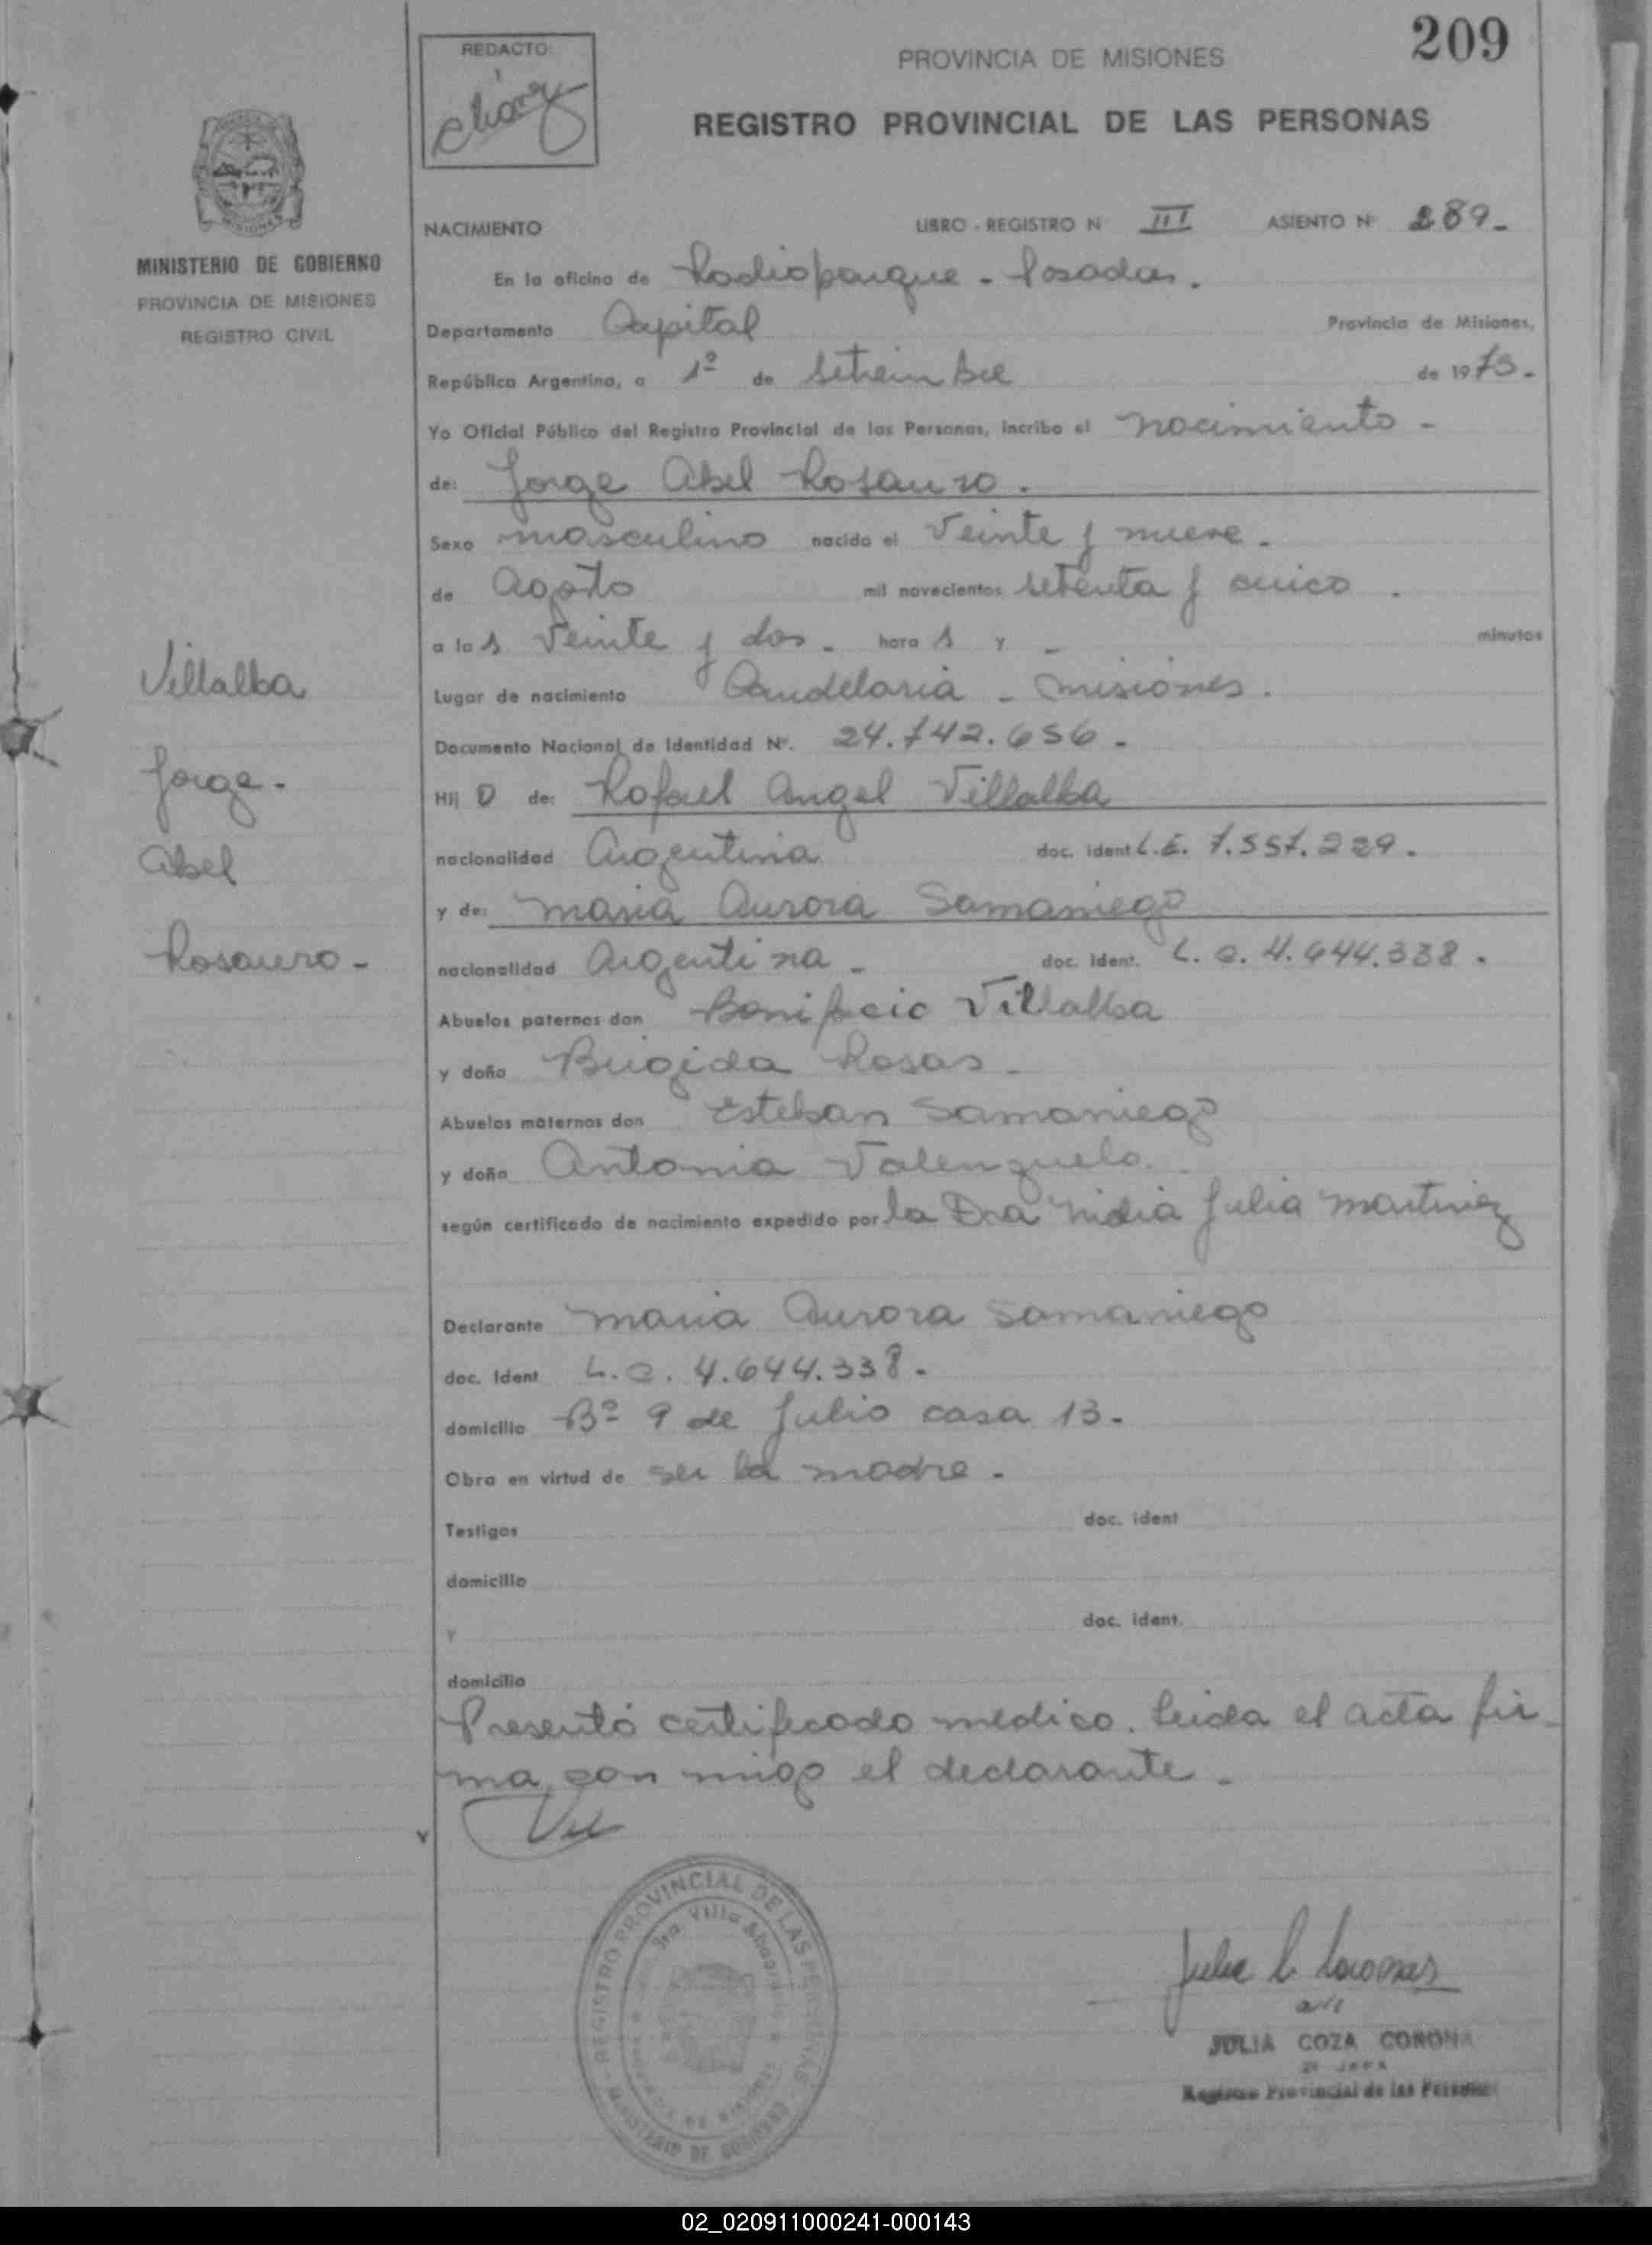 209
REDACTO:
PROVINCIA DE MISIONES
REGISTRO PROVINCIAL DE LAS PERSONAS
MINISTERIO DE GOBIERNO
PROVINCIA DE MISIONES
REGISTRO CIVIL
NACIMIENTO LIBRO - REGISTRO N III ASIENTO N 289-
En la oficina de Rodioparque - Posadas.
Departamento Capital Provincia de Misiones,
República Argentina, a 1º de Setiembre de 1975.
Yo Oficial Público del Registro Provincial de las Personas, incribo el nacimiento -
de: Jorge Abel Rosauro.
Sexo masculino nacido el Veinte y nueve.
de Agosto mil novecientos setenta y cinco.
a las Veinte y dos. hora s y - minutos
Lugar de nacimiento Candelaria - Misiones.
Documento Nacional de Identidad Nº. 24.742.656-
Hij o de: Rafael Angel Villalba
nacionalidad Argentina doc. ident L.E. 7.557.229.
y de: Maria Aurora Samaniego
nacionalidad Argentina - doc. ident. L.C. 4.644.338.
Abuelos paternos don Bonifacio Villalba
y doña Brigida Rosas-
Abuelos maternos don Esteban Samaniego
y doña Antonia Valenzuela.
según certificado de nacimiento expedido por la Dra Nidia Julia Martinez
Declarante Maria Aurora Samaniego
doc. Ident L.C. 4.644.338.
domicilio Bº 9 de Julio casa 13.
Obra en virtud de ser la madre.
Testigos doc. ident
domicilio
Y doc. ident.
domicilio
Presentó certificado medico. Leida el acta fir-
ma con migo el declarante.
Villalba
Jorge-
Abel
Rosauro-
REGISTRO PROVINCIAL DE LAS PERSONAS
MINISTERIO DE GOBIERNO
JULIA COZA CORONA
2º JEFA
Registro Provincial de las Personas
02_020911000241-000143